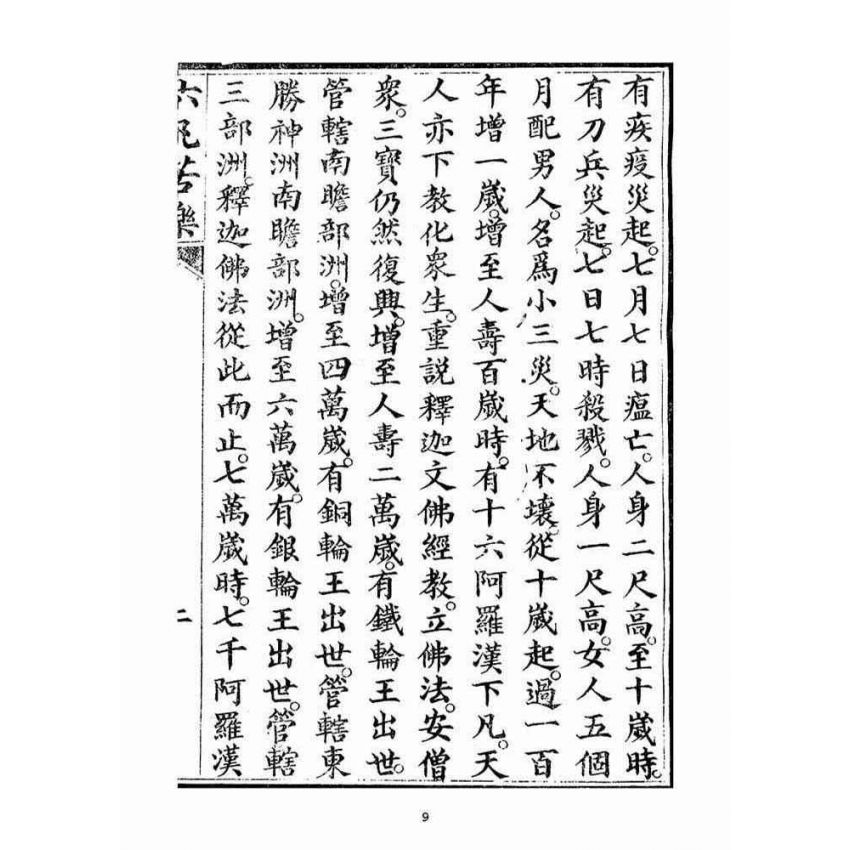 有疾疫災起。七月七日瘟亡。人身二尺高。至十歲時。
有刀兵災起。七日七時殺戮。人身一尺高。女人五個
月配男人。名爲小三災。天地不壞。從十歲起。過一百
年增一歲。增至人壽百歲時。有十六阿羅漢下凡。天
人亦下教化衆生。重說釋迦文佛經教。立佛法。安僧
衆。三寶仍然復興。增至人壽二萬歲。有鐵輪王出世。
管轄南贍部洲。增至四萬歲。有銅輪王出世。管轄東
勝神洲南贍部洲。增至六萬歲。有銀輪王出世。管轄
三部洲。釋迦佛法從此而止。七萬歲時。七千阿羅漢
苦樂
二
9